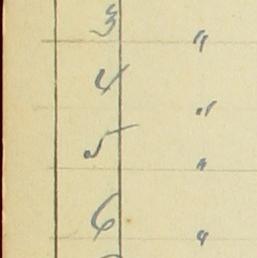 3 "
4 "
5 "
6 "